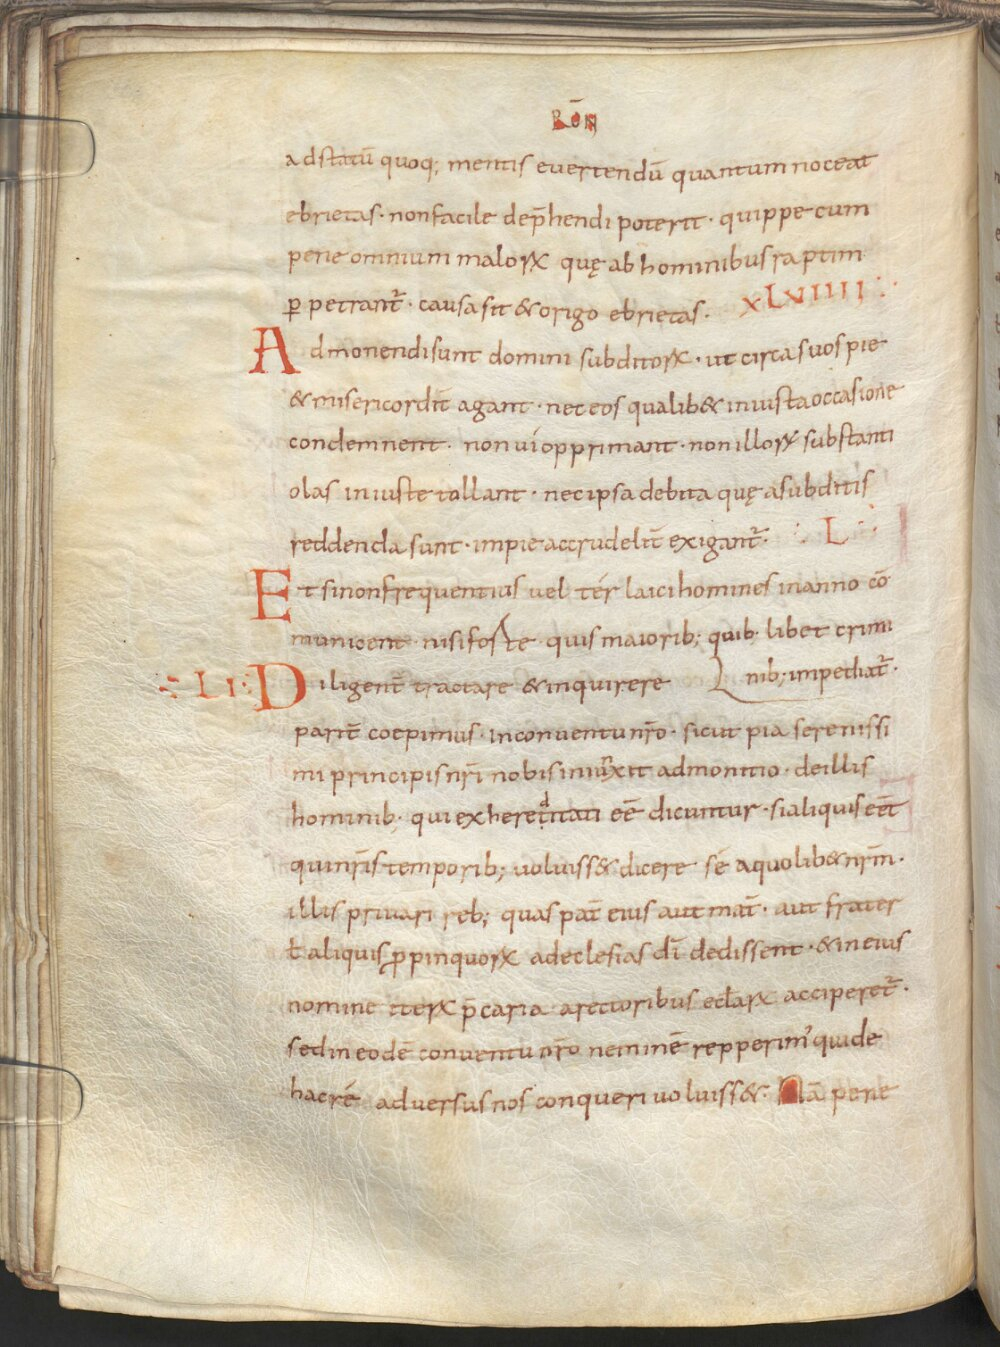 RŌN
ad statū quoq; mentis euertendū quantum noceat
ebrietas · non facile dep̄hendi poterit · quippe cum
pene omnium maloꝝ quę ab hominibus raptim
ꝑpetrant̄ · causa sit & origo ebrietas · XLVIIII
Admonendi sunt domini subditoꝝ · ut circa suos pie
& misericordit̄ agant · nec eos qualib& iniusta occasione
condemnent · non ui opprimant · non illoꝝ substanti
olas iniuste tollant · nec ipsa debita quę a subditis
reddenda sunt · impie ac crudelit̄ exigant̄ · L
Et si non frequentius uel tér laici homines in anno cō
municent · nisi forte quis maiorib; quib; libet crimi
nib; impediat̄ ·
LI Diligent̄ tractare & inquirere
part̄ coepimus · in conuentu nr̄o · sicut pia serenissi
mi principis nr̄i nobis iniunxit admonitio · de illis
hominib; qui exhereditati eē dicuntur · si aliquis eēt
qui nr̄is temporib; uoluiss& dicere sé a quolib& nr̄m ·
illis priuari reb; quas pat̄ eius aut mat̄ · aut frater
ł aliquis ꝓpinquoꝝ ad eclesias dī dedissent · & in eius
nomine iterꝝ p̄caria a rectoribus ecl̄arꝝ acciperet̄ ·
sed in eodē conuentu nr̄o neminē repperim' qui de
hac ré aduersus nos conqueri uoluiss& · Nā pene